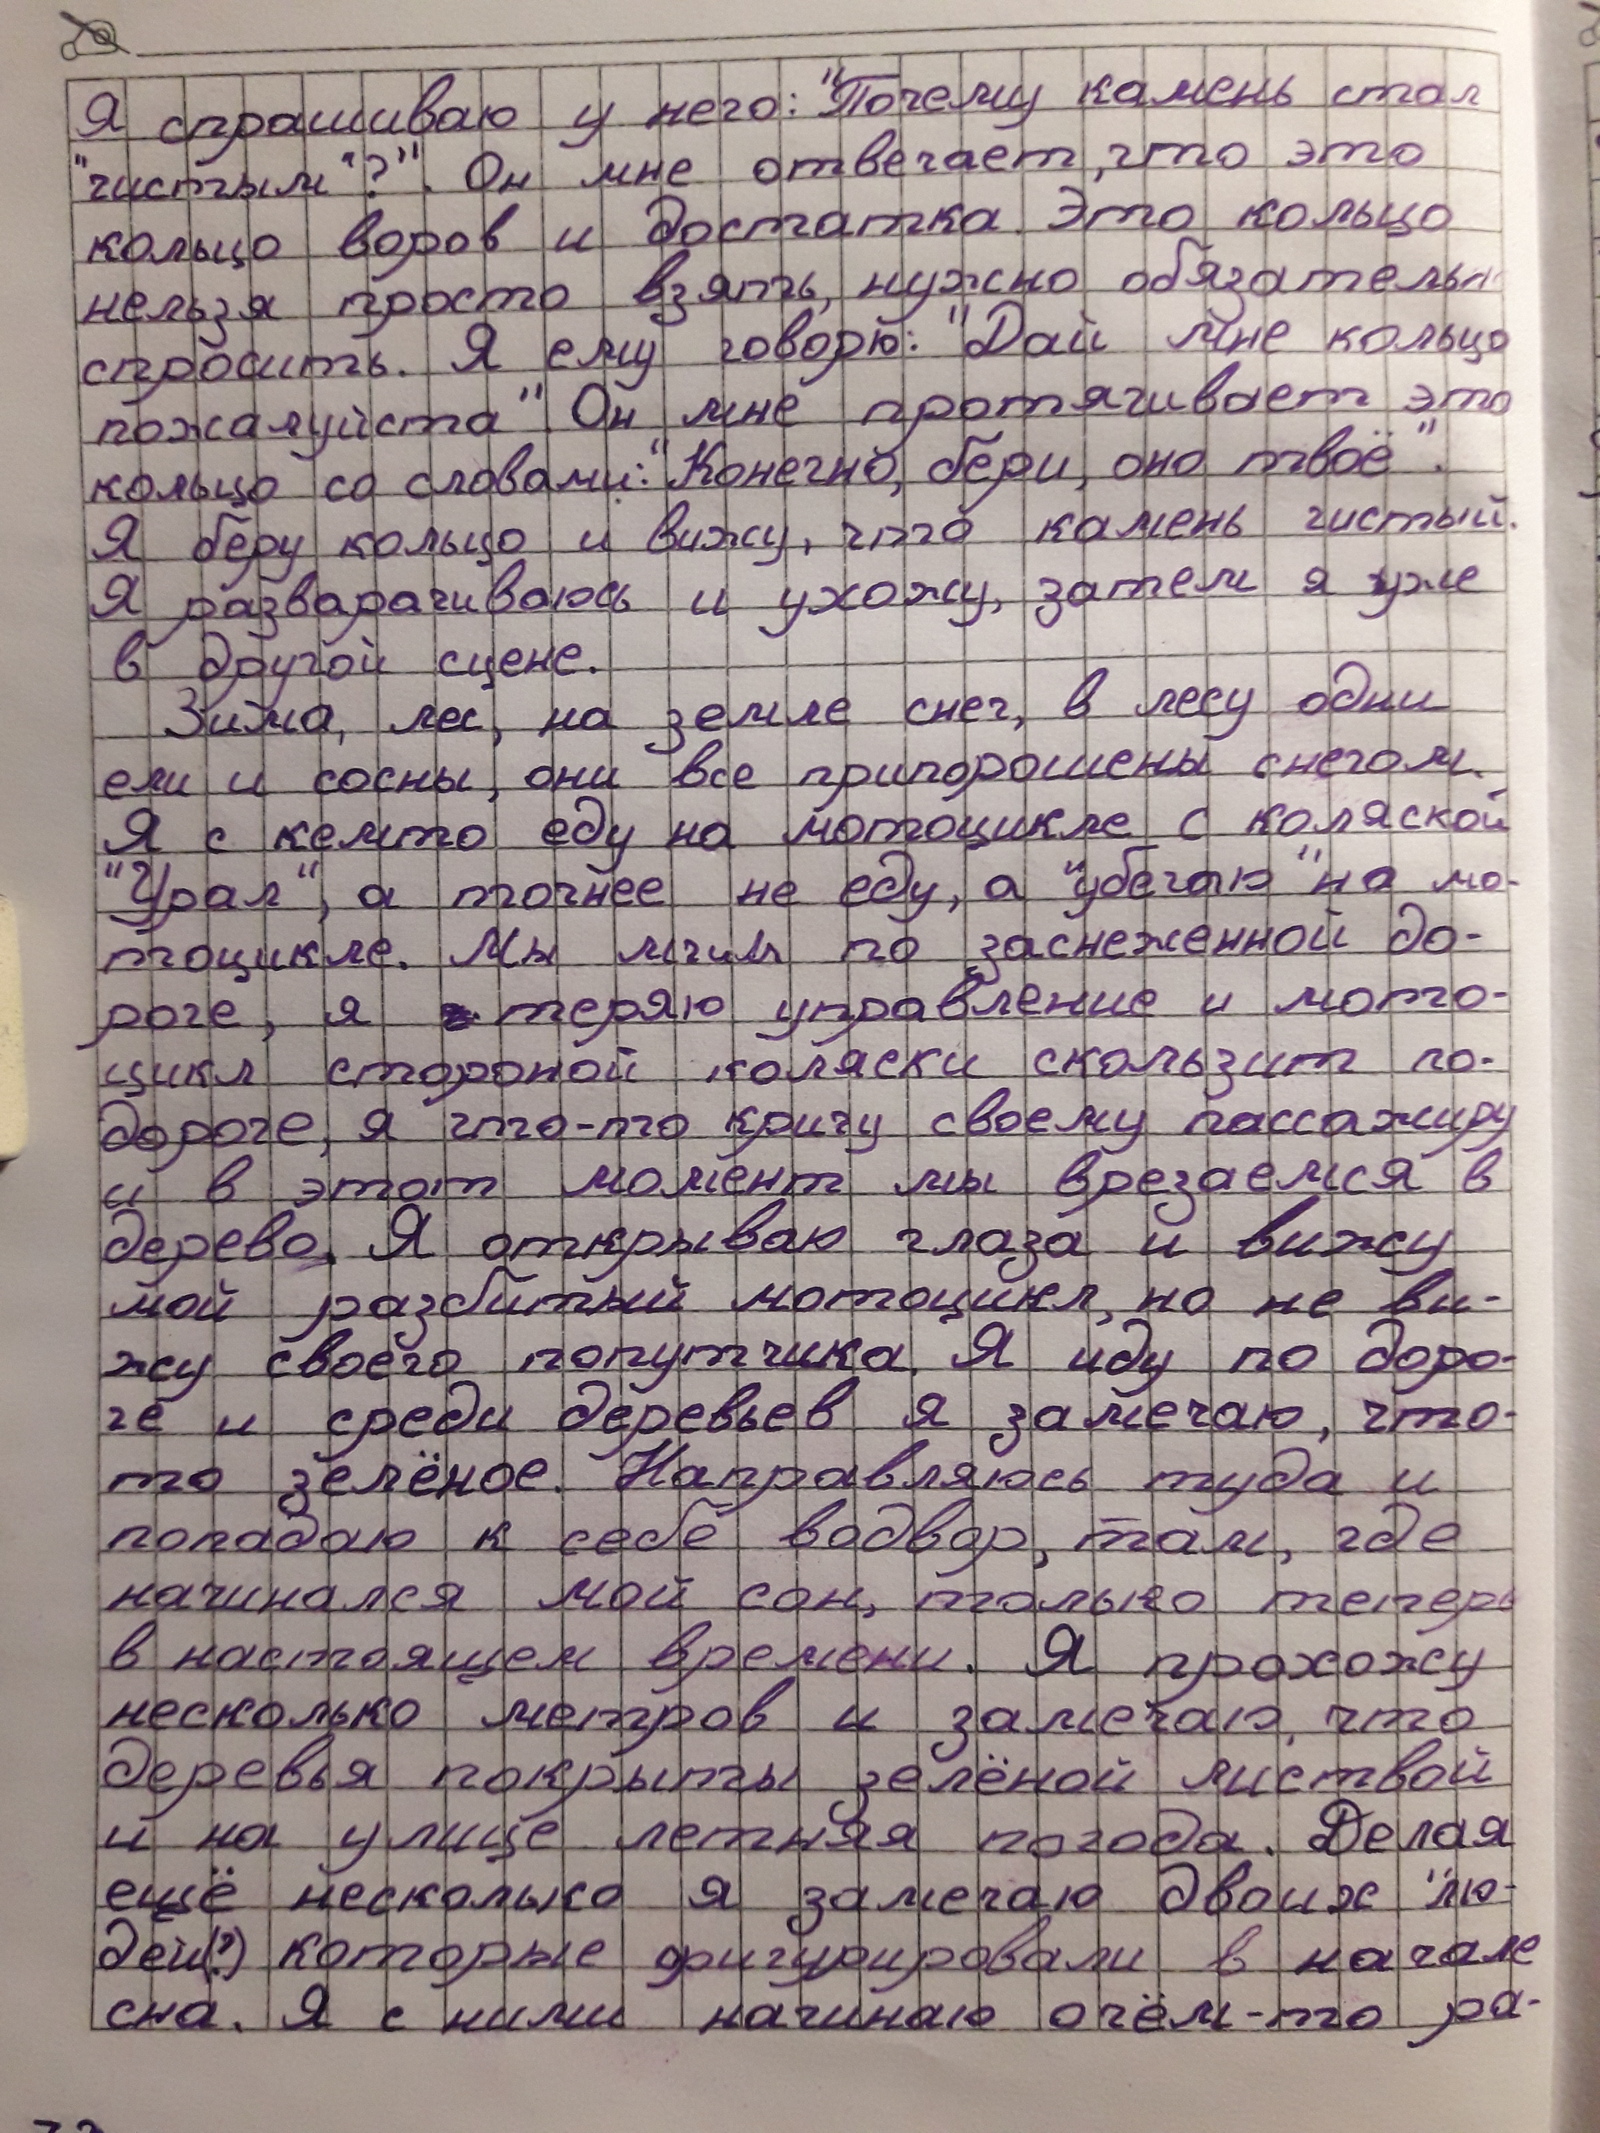 Я спрашиваю у него: "Почему камень стал
"чистым"?". Он мне отвечает, что это
кольцо воров и достатка. Это кольцо
нельзя просто взять, нужно обязательно
спросить. Я ему говорю: "Дай мне кольцо
пожалуйста". Он мне протягивает это
кольцо со словами: "Конечно, бери, оно твоё".
Я беру кольцо и вижу, что камень чистый.
Я разварачиваюсь и ухожу, затем я уже
в другой сцене.
Зима, лес, на земле снег, в лесу одни
ели и сосны, они все припорошены снегом.
Я с кемто еду на мотоцикле с коляской
"Урал", а точнее не еду, а "убегаю" на мо-
тоцикле. Мы мчим по заснеженной до-
роге, я теряю управление и мото-
цикл стороной коляски скользит по-
дороге, я что-то кричу своему пассажиру
и в этот момент мы врезаемся в
дерево. Я открываю глаза и вижу
мой разбитый мотоцикл, но не ви-
жу своего попутчика. Я иду по доро-
ге и среди деревьев я замечаю, что-
то зелёное. Направляюсь туда и
попадаю к себе водвор, там, где
начинался мой сон, только теперь
в настоящем времени. Я прохожу
несколько метров и замечаю, что
деревья покрыты зелёной листвой
и на улице летняя погода. Делая
ещё несколько я замечаю двоих "лю-
дей(?) которые фигурировали в начале
сна. Я с ними начинаю очём-то ра-